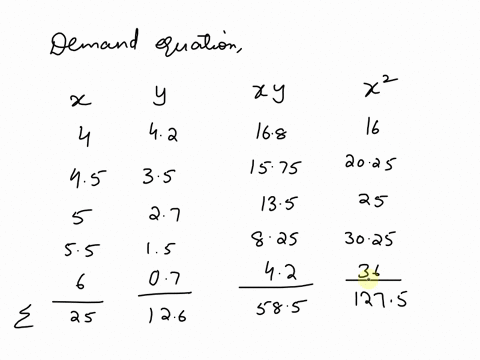 Demand equation,
x y xy x²
4 4.2 16.8 16
4.5 3.5 15.75 20.25
5 2.7 13.5 25
5.5 1.5 8.25 30.25
6 0.7 4.2 36
Σ 25 12.6 58.5 127.5